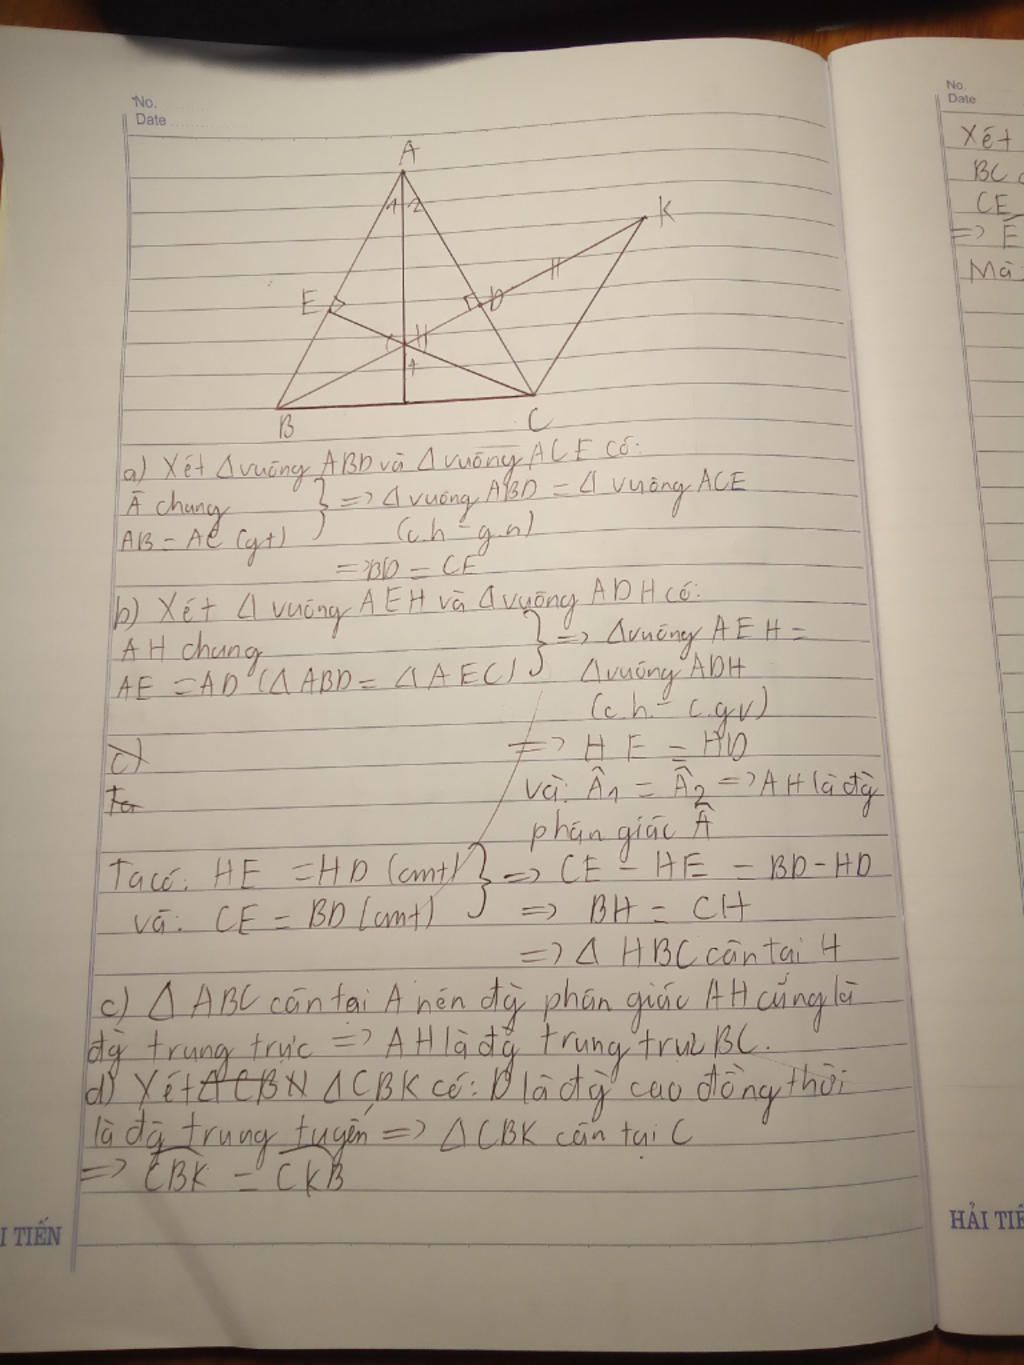 No.
Date
A
1 2
K
E
D
H
1
B
C
a) Xét Δ vuông ABD và Δ vuông ACE có:
Â chung
AB = AC (gt)
=> Δ vuông ABD = Δ vuông ACE
(c.h - g.n)
=> BD = CE
b) Xét Δ vuông AEH và Δ vuông ADH có:
AH chung
AE = AD (Δ ABD = Δ AEC)
=> Δ vuông AEH =
Δ vuông ADH
(c.h - c.gv)
=> HE = HD
và: Â1 = Â2 => AH là đg̀
phân giác Â
c)
Ta
Ta có: HE = HD (cmt)
và: CE = BD (cmt)
=> CE - HE = BD - HD
=> BH = CH
=> Δ HBC cân tại H
c) Δ ABC cân tại A nên đg̀ phân giác AH cũng là
đg̀ trung trực => AH là đg̀ trung trực BC.
d) Xét ΔCBN ΔCBK có: D là đg̀ cao đồng thời
là đg̀ trung tuyến => Δ CBK cân tại C
=> CBK = CKB
I TIẾN
No.
Date
Xét
BC
CE
=> E
Mà
HẢI TIẾ